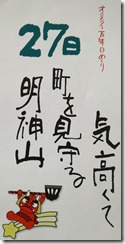 万年日めくり
27日
気高くて
町を見守る
明神山